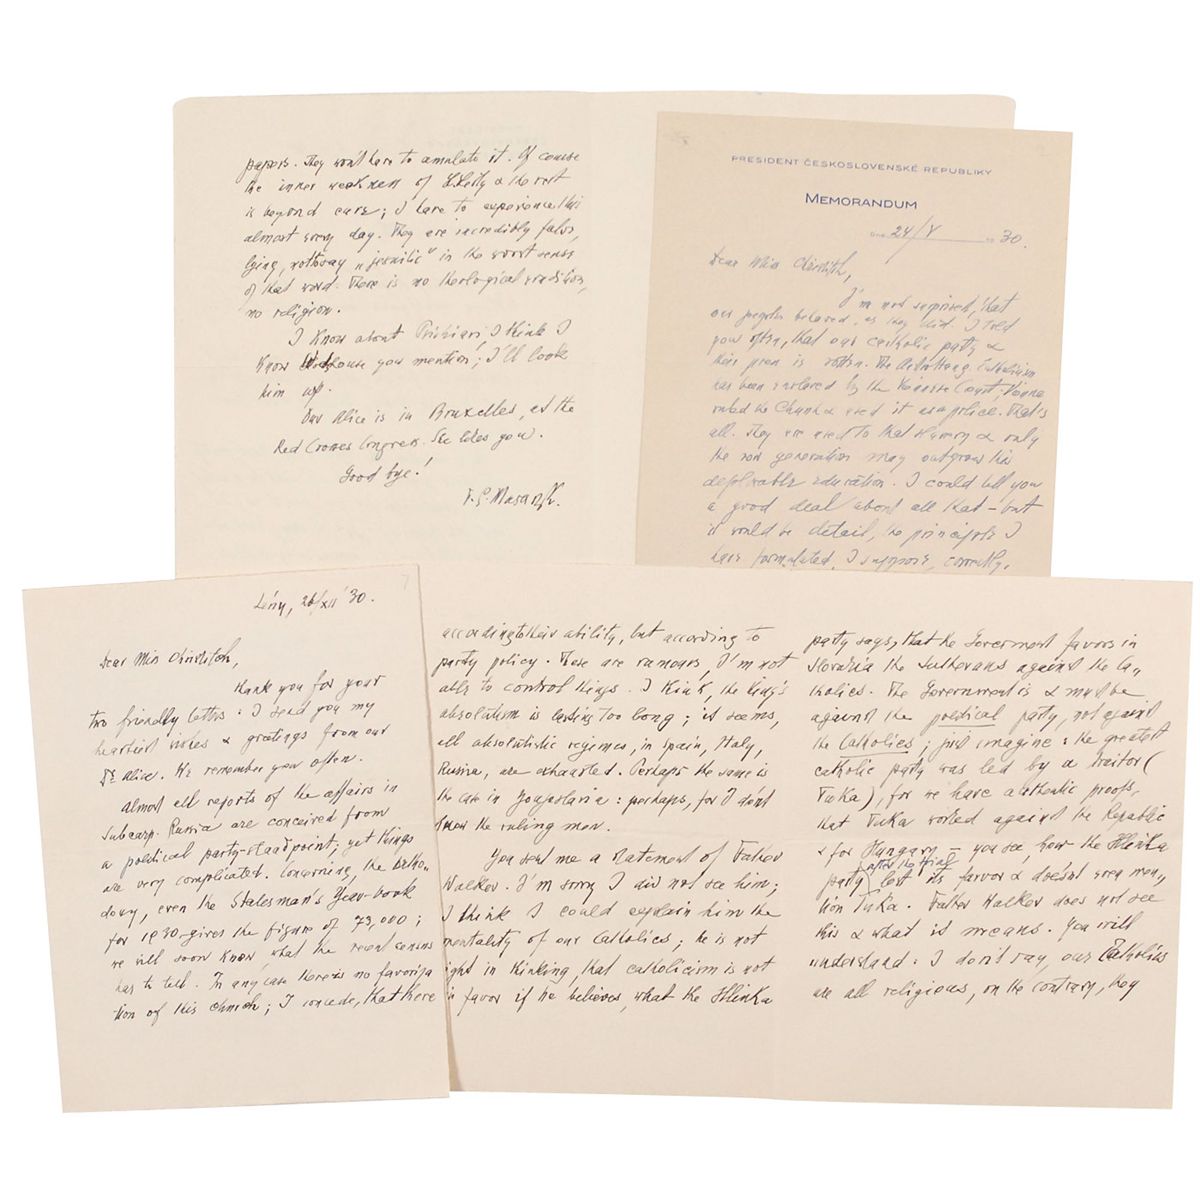 papers. They won't have to emulate it. Of course
the inner weakness of & the rest
is beyond cure; I have to experience this
almost every day. They are incredibly false,
lying, „jesuitic" in the worst sense
of that word. There is no theological erudition,
no religion.
I know about I think I
know you mention; I'll look
him up.
Our Alice is in Bruxelles, at the
Red Crosses Congress. She likes you.
Good bye!
T. G. Masaryk.
PRESIDENT ČESKOSLOVENSKÉ REPUBLIKY
MEMORANDUM
Dne 24/V 19 30.
Dear Miss
I'm not surprised, that
our people behaved, as they did. I told
you often, that our catholic party &
their press is rotten. The Catholicism
has been enslaved by the Court; Vienna
ruled the Church & used it as a police. That's
all. They are used to that & only
the new generation may outgrow this
deplorable education. I could tell you
a good deal about all that – but
it would be detail, the principle I
have formulated, I suppose, correctly.
7
Lány, 26/XII '30.
Dear Miss
thank you for your
two friendly letters: I send you my
heartiest wishes & greetings from our
Dr. Alice. We remember you often.
Almost all reports of the affairs in
Subcarp. Russia are conceived from
a political party-standpoint; yet things
are very complicated. Concerning, the Ortho-
doxy, even the Statesman's Year-book
for 1930 gives the figure of 73,000;
we will soon know what the recent census
has to tell. In any case there is no favoriza
tion of this church; I concede, that there
according to their ability, but according to
party policy. These are rumours, I'm not
able to control things. I think, the King's
absolutism is lasting too long; it seems,
all absolutistic regimes, in Spain, Italy,
Russia, are exhausted. Perhaps the same is
the case in Yougoslavia: perhaps, for I don't
know the ruling men.
You sent me a statement of Father
Walker. I'm sorry I did not see him;
I think I could explain him the
mentality of our Catholics; he is not
right in thinking, that catholicism is not
in favor if he believes, what the Hlinka
party says, that the Government favors in
Slovakia the Lutherans against the Ca-
tholics. The Government is & must be
against the political party, not against
the Catholics; just imagine: the greatest
catholic party was led by a traitor (
Tuka), for we have authentic proofs,
that Tuka worked against the Republic
& for Hungary – you see, how the Hlinka
after the trial
party lost its favor & doesn't even men-
tion Tuka. Father Walker does not see
this & what it means. You will
understand: I don't say, our Catholics
are all religious, on the contrary, they